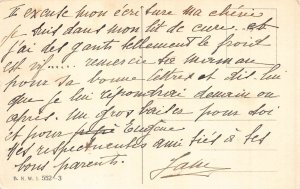 excuse mon écriture ma chérie
je suis dans mon lit de cure. et
j'ai des gants tellement le froid
est vif.... remercie ta maman
pour sa bonne lettre et dis lui
que je lui répondrai demain ou
après. Un gros baiser pour toi
et pour Eugène
Mes respectueuses amitiés à tes
bons parents.
B. K. W. I. 552-3